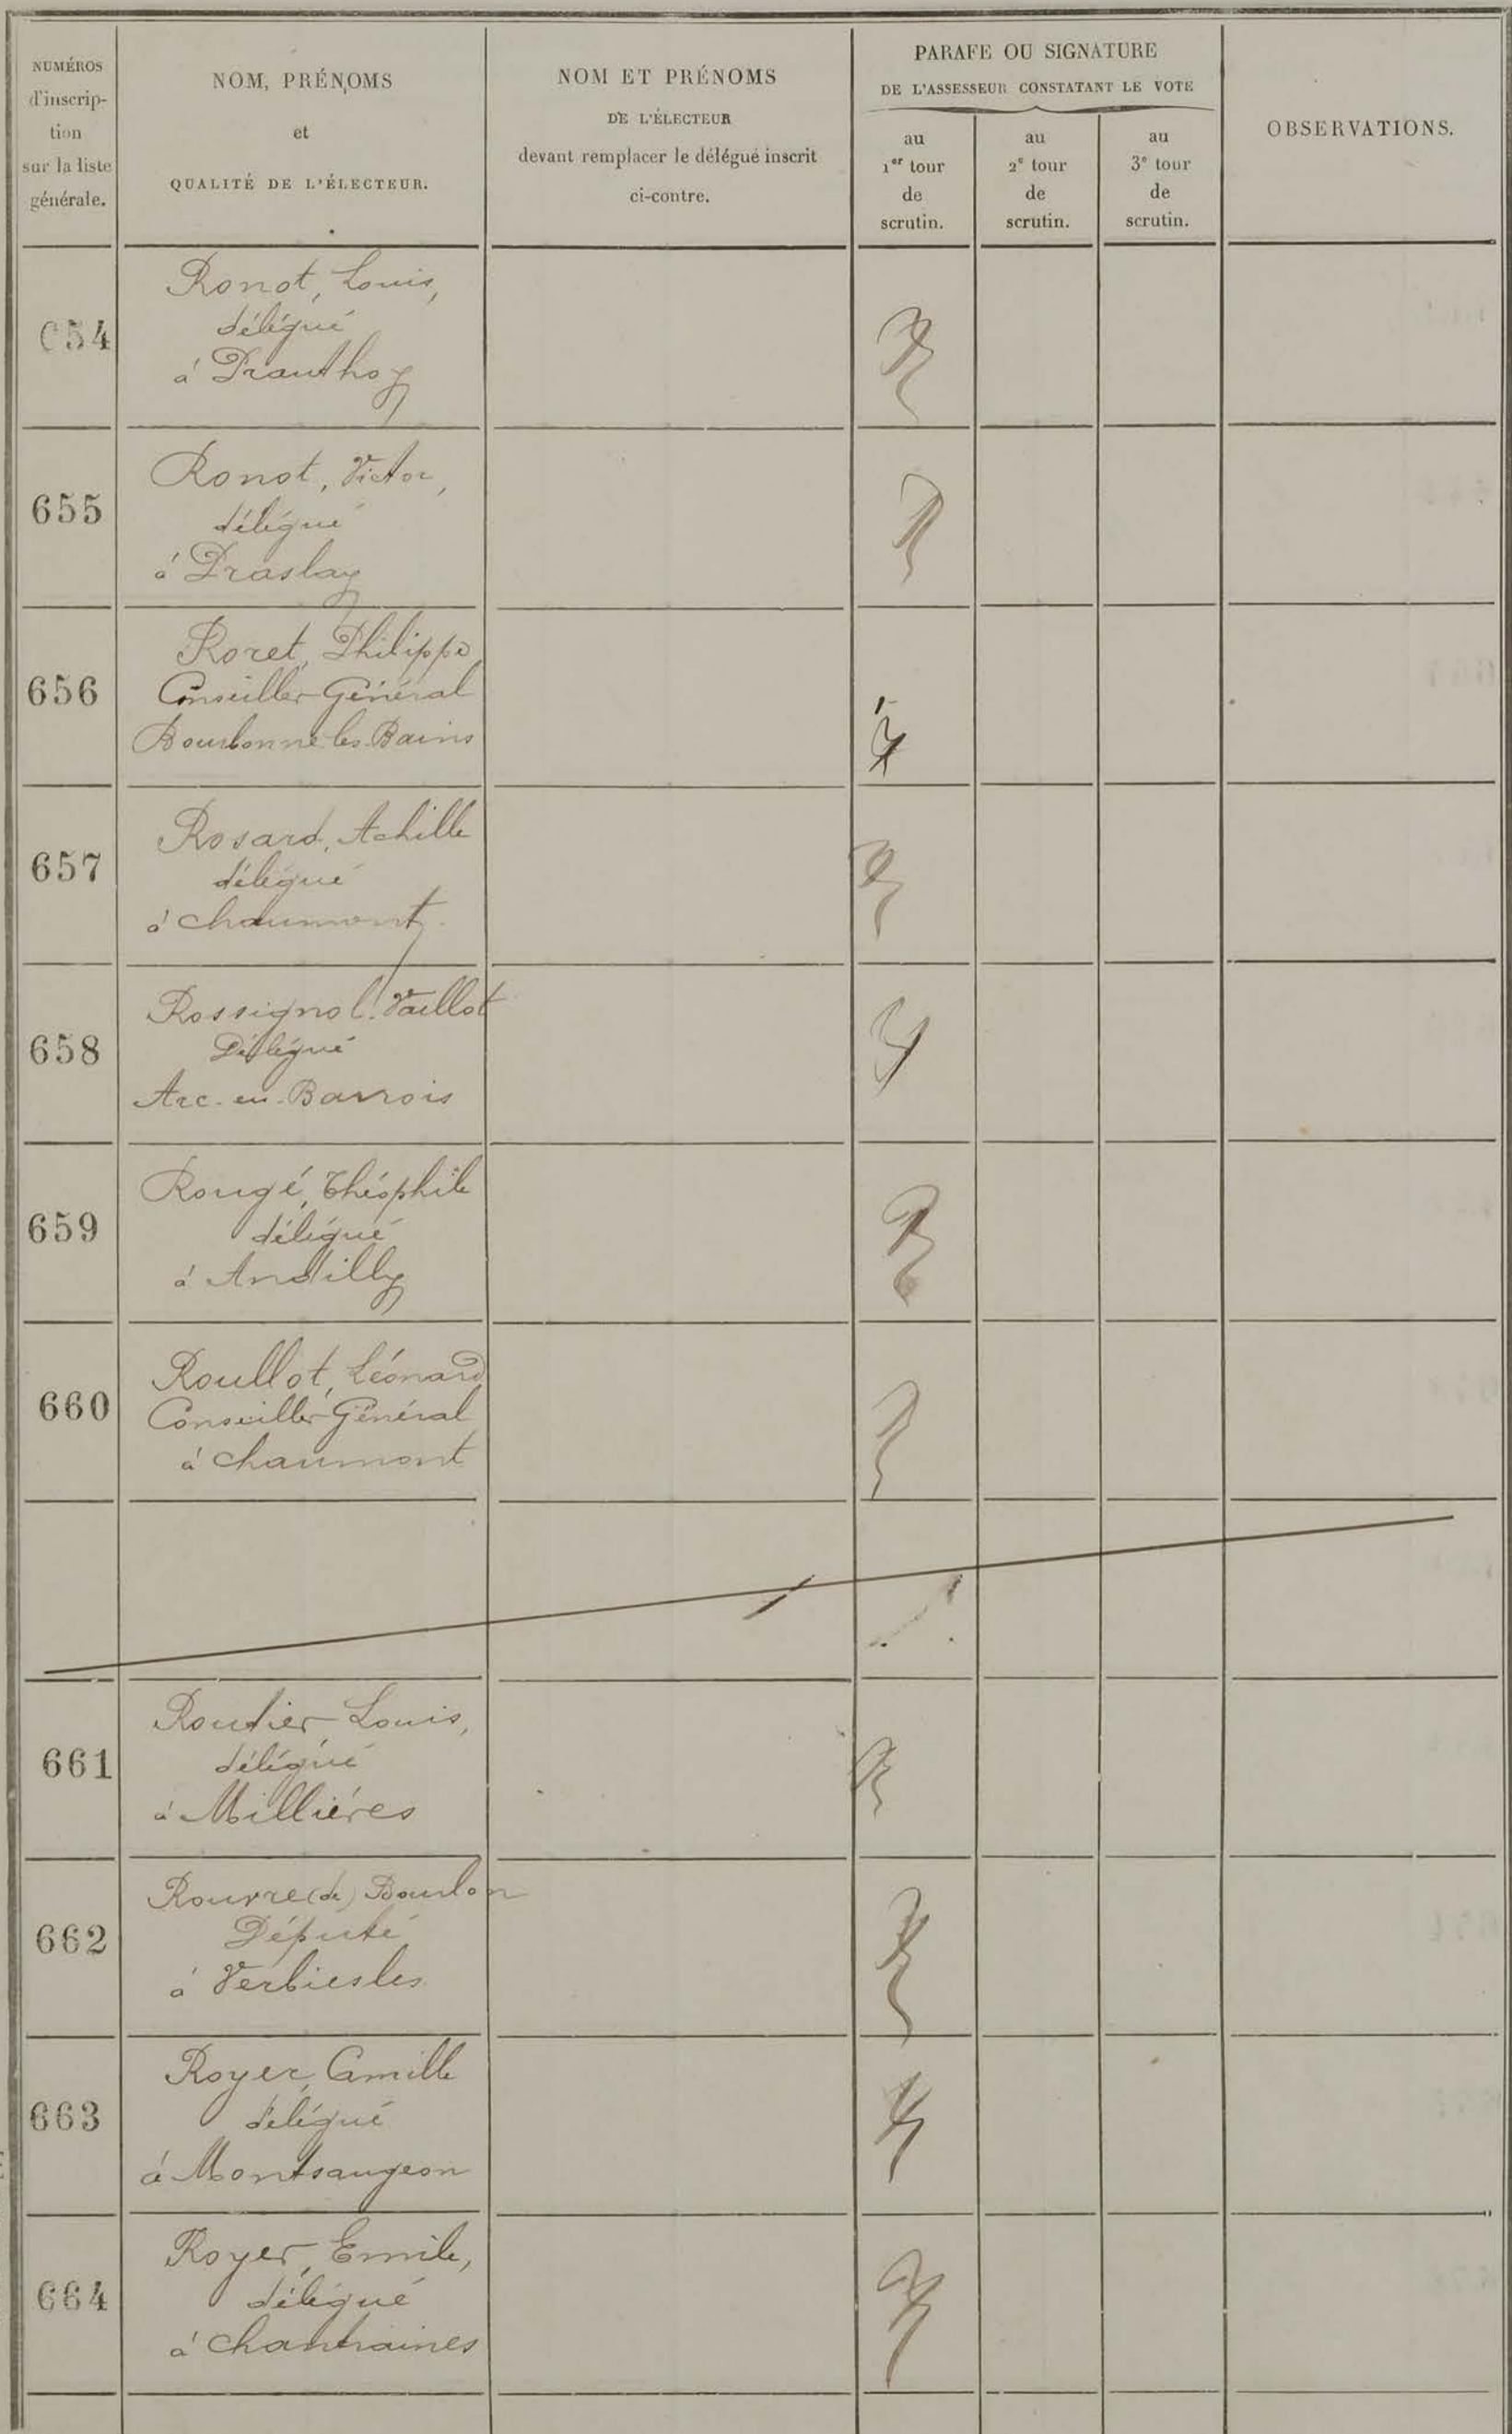 NUMÉROS
d'inscrip-
tion
sur la liste
générale.
NOM, PRÉNOMS
et
QUALITÉ DE L'ÉLECTEUR.
NOM ET PRÉNOMS
DE L'ÉLECTEUR
devant remplacer le délégué inscrit
ci-contre.
PARAFE OU SIGNATURE
DE L'ASSESSEUR CONSTATANT LE VOTE
au
1er tour
de
scrutin.
au
2e tour
de
scrutin.
au
3e tour
de
scrutin.
OBSERVATIONS.
654
Ronot, Louis,
délégué
à Prauthoy
655
Ronot, Victor,
délégué
à Praslay
656
Roret, Philippe
Conseiller Général
Bourbonne-les-Bains
657
Rosard, Achille
délégué
à Chaumont
658
Rossignol-Vaillot
Délégué
Arc-en-Barrois
659
Rougé, Théophile
délégué
à Andilly
660
Roullot, Léonard
Conseiller Général
à Chaumont
661
Routier Louis,
délégué
à Millières
662
Rouvre (de) Bourlon
Député
à Verbiesles
663
Royer, Camille
délégué
à Montsaugeon
664
Royer, Emile,
délégué
à Chantraines